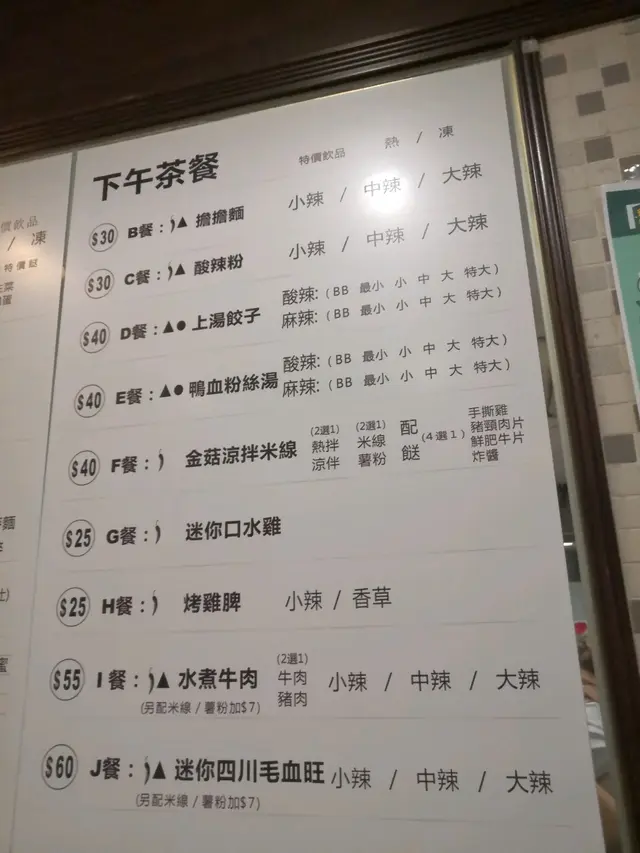 下午茶餐 特價飲品 熱 / 凍
$30 B餐: ▲ 擔擔麵 小辣 / 中辣 / 大辣
$30 C餐: ▲ 酸辣粉 小辣 / 中辣 / 大辣
$40 D餐: ▲● 上湯餃子 酸辣: (BB 最小 小 中 大 特大)
麻辣: (BB 最小 小 中 大 特大)
$40 E餐: ▲● 鴨血粉絲湯 酸辣: (BB 最小 小 中 大 特大)
麻辣: (BB 最小 小 中 大 特大)
$40 F餐: 金菇涼拌米線 (2選1) 熱拌 涼伴 (2選1) 米線 薯粉 配餸 (4選1) 手撕雞 豬頸肉片 鮮肥牛片 炸醬
$25 G餐: 迷你口水雞
$25 H餐: 烤雞脾 小辣 / 香草
$55 I餐: ▲ 水煮牛肉 (2選1) 牛肉 豬肉 小辣 / 中辣 / 大辣
(另配米線 / 薯粉加$7)
$60 J餐: ▲ 迷你四川毛血旺 小辣 / 中辣 / 大辣
(另配米線 / 薯粉加$7)
價飲品
/ 凍
特價餸
麵
蜜